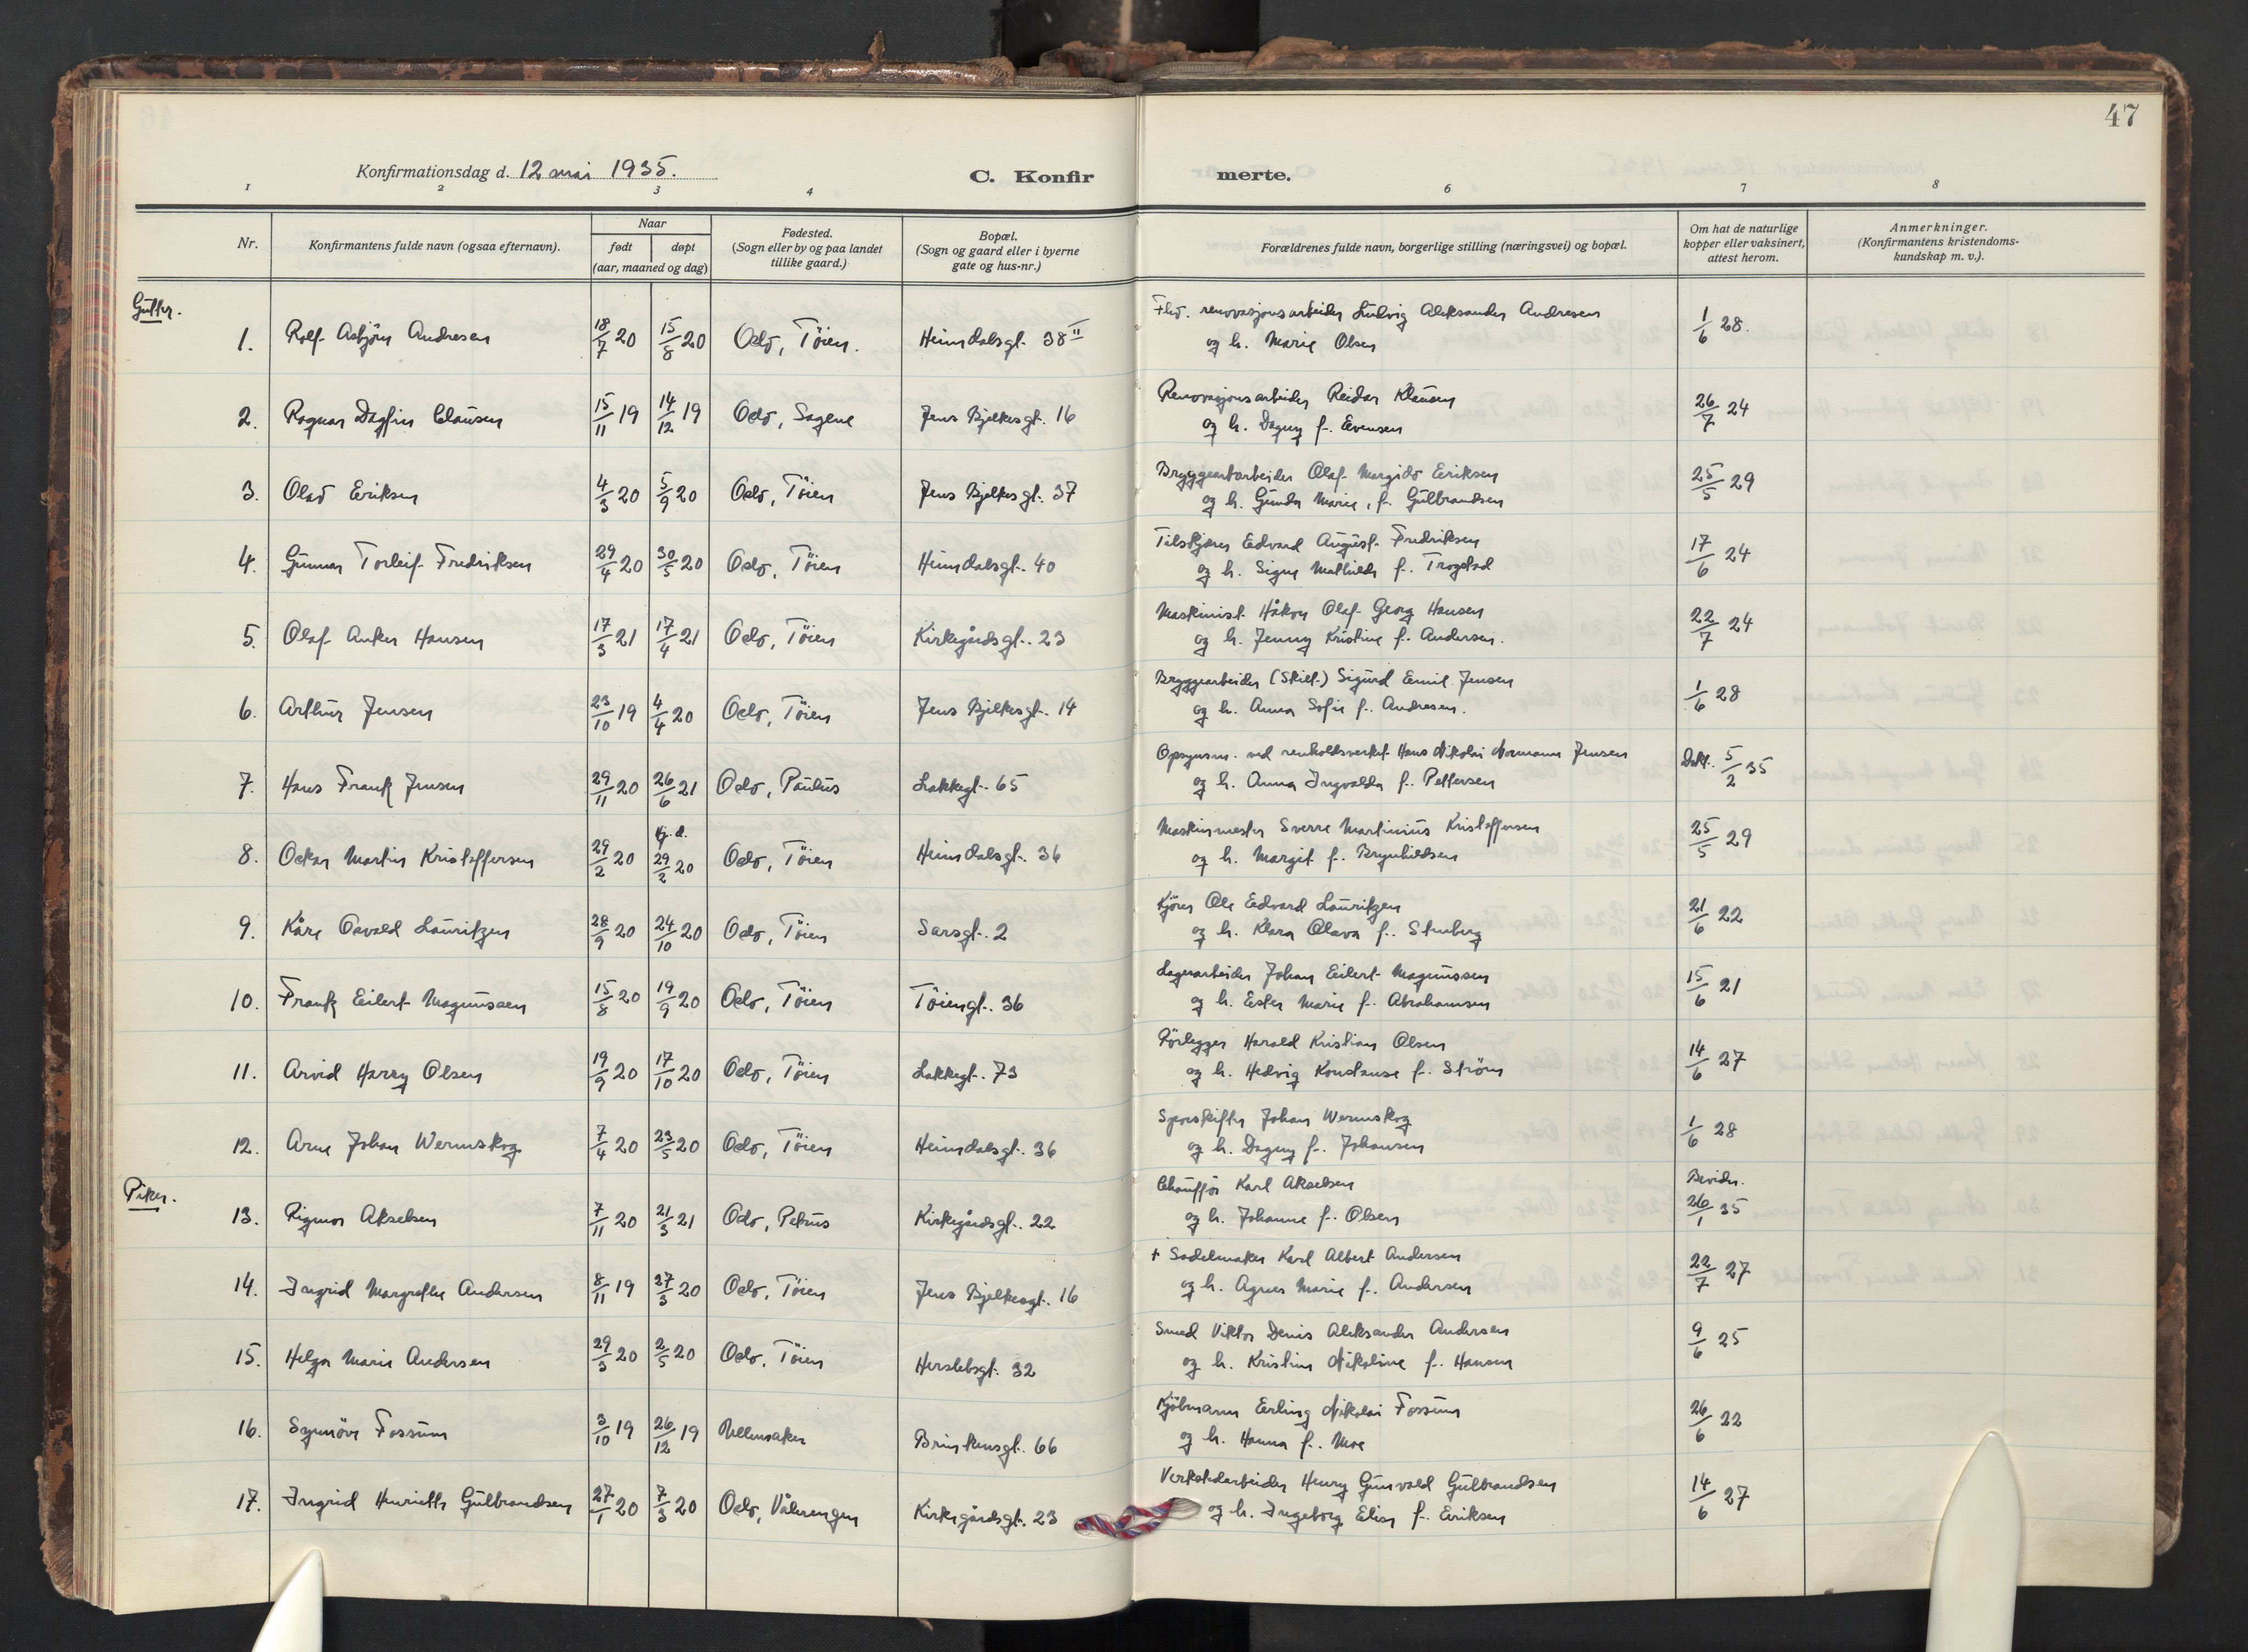 47
Konfirmationsdag d. 12 mai 1935.
C. Konfir merte.
1 2 3 4 6 7 8
Nr.
Konfirmantens fulde navn (ogsaa efternavn).
Naar
født døpt
(aar, maaned og dag)
Fødested.
(Sogn eller by og paa landet
tillike gaard.)
Bopæl.
(Sogn og gaard eller i byerne
gate og hus-nr.)
Forældrenes fulde navn, borgerlige stilling (næringsvei) og bopæl.
Om hat de naturlige
kopper eller vaksinert,
attest herom.
Anmerkninger.
(Konfirmantens kristendoms-
kundskap m. v.).
Gutter.
1. Rolf Asbjörn Andresen 18/7 20 15/8 20 Oslo, Töien. Heimdalsgt. 38 II
renovasjonsarbeider Ludvig Aleksander Andresen 1/6 28.
og h. Marie Olsen
2. Ragnar Dagfin Clausen 15/11 19 14/12 19 Oslo, Sagene Jens Bjelkesgt. 16
Renovasjonsarbeider Reidar Klausen 26/7 24
og h. Dagny f. Evensen
3. Olav Eriksen 4/3 20 5/9 20 Oslo, Töien Jens Bjelkes gt. 37
Olaf Margido Eriksen 25/5 29
og h. Gunda Marie, f. Gulbrandsen
4. Gunnar Torleif Fredriksen 29/4 20 30/5 20 Oslo, Töien Heimdalsgt. 40
Tilskjærer Edvard August Fredriksen 17/6 24
og h. Signe Mathilde f. Trogstad
5. Olaf Anker Hansen 17/3 21 17/4 21 Oslo, Töien Kirkegårdsgt. 23
Maskinist Håkon Olaf Georg Hansen 22/7 24
og h. Jenny Kristine f. Andersen.
6. Arthur Jensen 23/10 19 4/4 20 Oslo, Töien Jens Bjelkesgt. 14
Bryggearbeider (Skilt.) Sigurd Emil Jensen 1/6 28
og h. Anna Sofie f. Andresen.
7. Hans Frank Jensen 29/11 20 26/6 21 Oslo, Paulus Lakkegt. 65
Opsynsm. ved renholdsverket Hans Nikolai Normann Jensen Dokt. 5/2 35
og h. Anna Ingvalda f. Pettersen
8. Oskar Martin Kristoffersen 29/2 20 hj. d. 29/2 20 Oslo, Töien Heimdalsgt. 36
Maskinmester Sverre Martinius Kristoffersen 25/5 29
og h. Margit f. Brynhildsen
9. Kåre Osvald Lauritzen 28/9 20 24/10 20 Oslo, Töien Sarsgt. 2
Kjörer Ole Edvard Lauritzen 21/6 22
og h. Klara Olava f. Stenberg
10. Frank Eilert Magnussen 15/8 20 19/9 20 Oslo, Töien Töiengt. 36
Lagerarbeider Johan Eilert Magnussen 15/6 21
og h. Ester Marie f. Abrahamsen
11. Arvid Harry Olsen 19/9 20 17/10 20 Oslo, Töien Lakkegt. 73
Rörlegger Harald Kristian Olsen 14/6 27
og h. Hedvig Konstanse f. Ström
12. Arne Johan Wermskog 7/4 20 23/5 20 Oslo, Töien Heimdalsgt. 36
Sporskifter Johan Wermskog 1/6 28
og h. Dagny f. Johansen
Piker.
13. Rigmor Akselsen 7/11 20 21/3 21 Oslo, Petrus Kirkegårdsgt. 22
Chaufför Karl Akselsen Bevidn. 26/1 35
og h. Johanne f. Olsen
14. Ingrid Margrethe Andersen 8/11 19 27/3 20 Oslo, Töien Jens Bjelkesgt. 16
+ Sadelmaker Karl Albert Andersen 22/7 27
og h. Agnes Marie f. Andersen
15. Helga Marie Andersen 29/3 20 2/5 20 Oslo, Töien Herslebsgt. 32
Smed Viktor Denis Aleksander Andersen 9/6 25
og h. Kristine Nikoline f. Hansen
16. Synnöve Fossum 3/10 19 26/12 19 Ullensaker Brinkensgt. 66
Kjöbmann Erling Nikolai Fossum 26/6 22
og h. Hanna f. Moe
17. Ingrid Henriette Gulbrandsen 27/1 20 7/3 20 Oslo, Vålerengen Kirkegårdsgt. 23
Verkstedarbeider Henry Gunvald Gulbrandsen 14/6 27
og h. Ingeborg Elise f. Eriksen